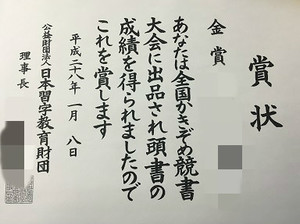 賞状
金賞
あなたは全国かきぞめ競書
大会に出品され頭書の
成績を得られましたので
これを賞します
平成二十八年一月八日
公益財団法人日本習字教育財団
理事長